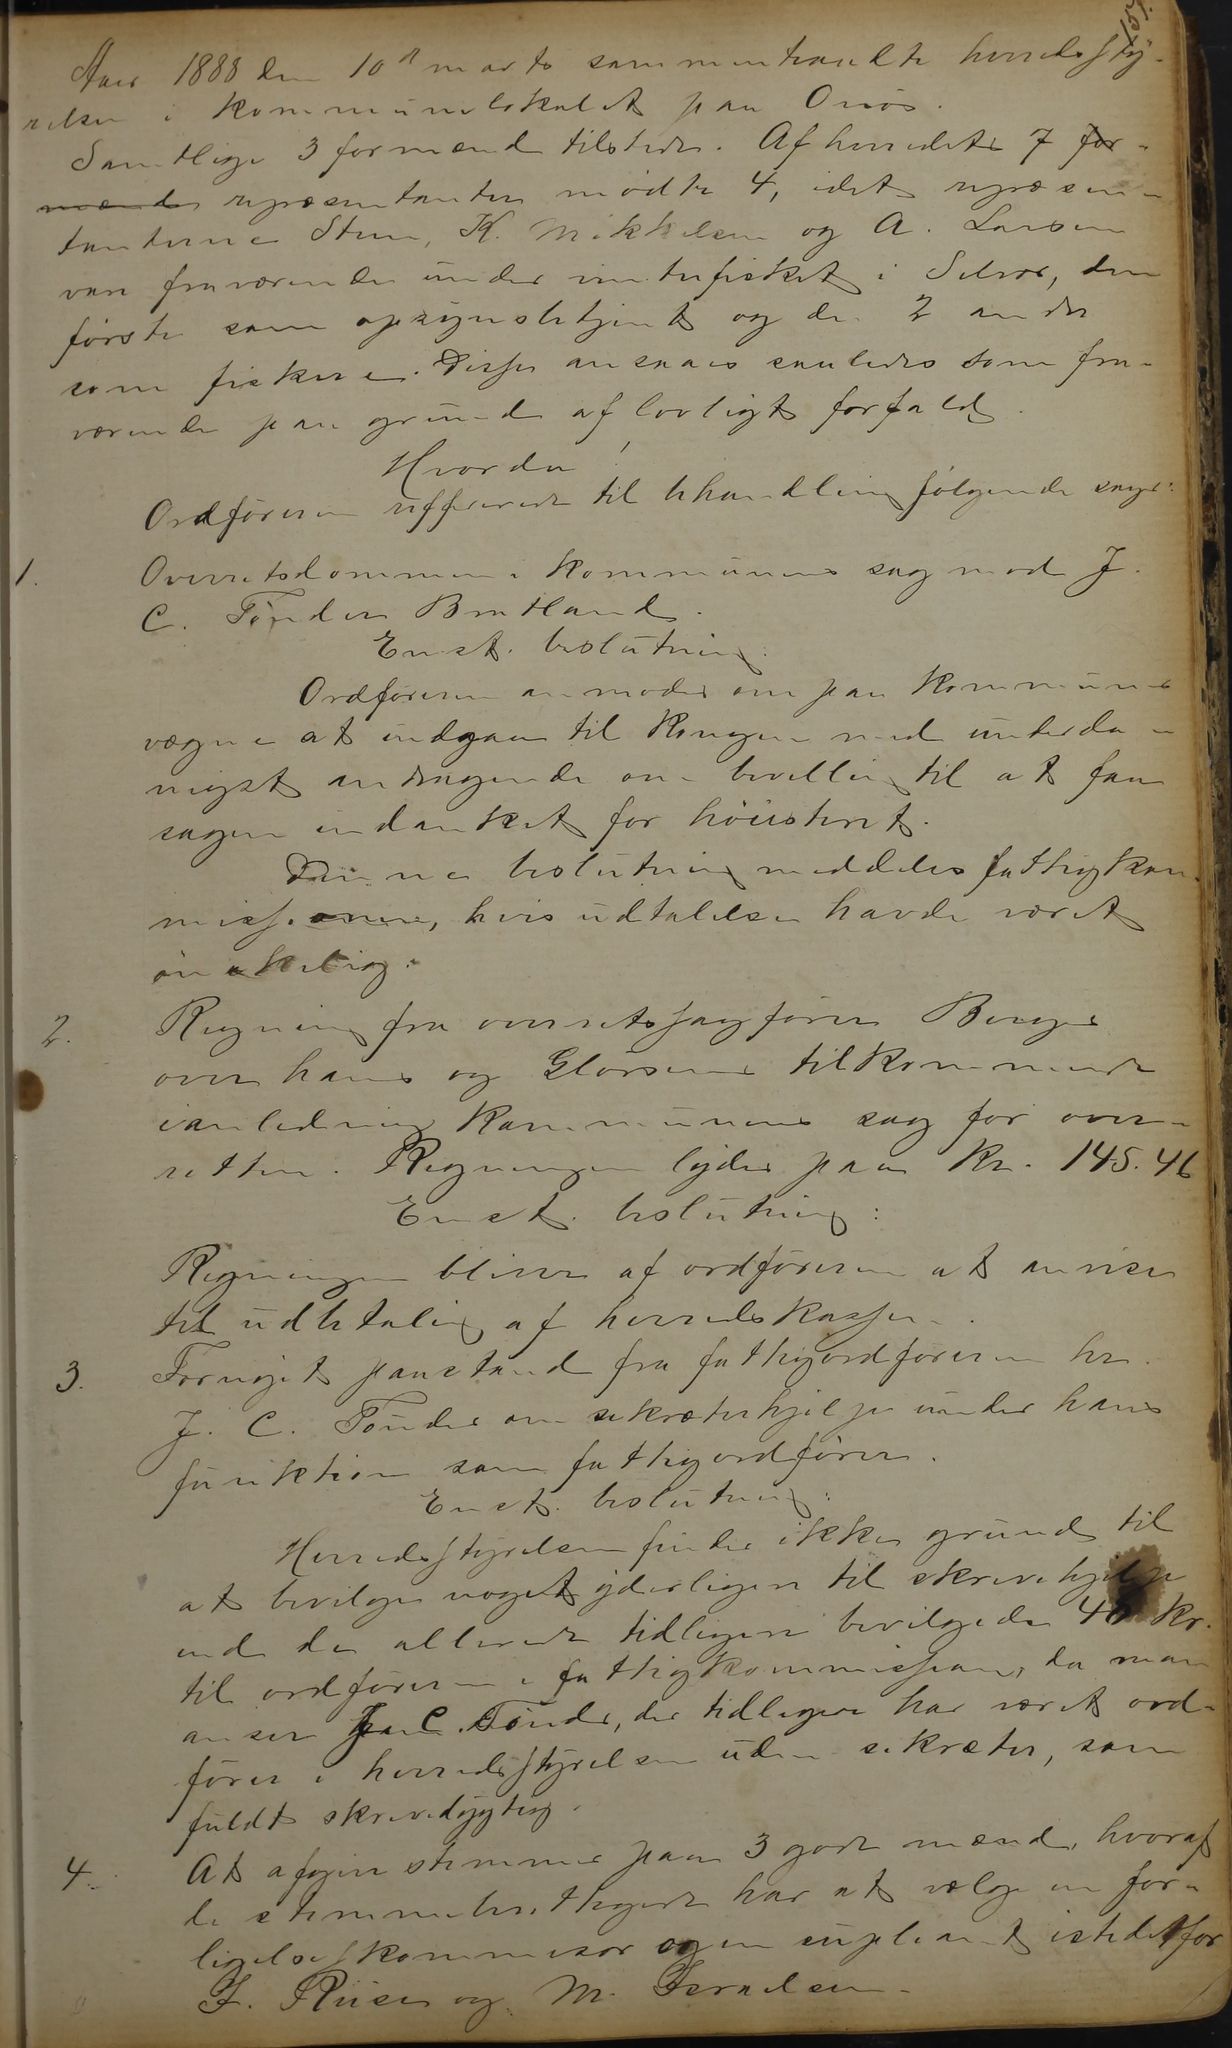 Aar 1888 den 10de marts sammentraadte herredssty-
relsen i kommunelokalet paa Onøs.
Samtlige 3 formænd tilstede. Af herredets 7 for-
mænds repræsentanter mødte 4, idet repræsen-
tanterne Steen, K. Mikkelsen og A. Larsen
vare fraværende under vinterfisket i Selvær, den
første som opsynsbetjent og de 2 andre
som fiskere. Disse ansaaes saaledes som fra-
værende paa grund af lovligt forfald.
Hvorda!
Ordføreren refererede til behandling følgende sager:
1. Overretsdommen i kommunens sag mod J.
C. Tønder Bratland.
Enst. beslutning:
Ordføreren anmodes om paa kommunens
vegne at indgaa til Kongen med underda-
nigst andragende om bevilling til at faa
sagen indanket for höiesteret.
Denne beslutning meddeles fattigkom-
missionen, hvis udtalelse havde været
ønskelig.
2. Regning fra overretssagfører Berge
over hans og tilkommende
ianledning kommunens sag for over-
retten. Regningen lyder paa Kr. 145.46
Enst. beslutning:
Regningen bliver af ordføreren at anvise
til udbetaling af herredskassen.
3. Fornyet paastand fra fattigordføreren hr.
J. C. Tønder om sekretærhjelp under hans
funktion som fattigordfører.
Enst. beslutning:
Herredsstyrelsen finder ikke grund til
at bevilge noget yderligere til skrivehjelp
end de allerede tidligere bevilgede 40 kr.
til ordføreren i fattigkommissionen, da man
anser J. C. Tønder, der tidligere har været ord-
fører i herredsstyrelsen uden sekretær, som
fuldt skrivedygtig.
4. At afgive stemmer paa 3 gode mænd, hvoraf
de stemmeberettigede har at vælge en for-
ligelseskommisær og en suppleant istedetfor
J. Riise og M. Israelsen.